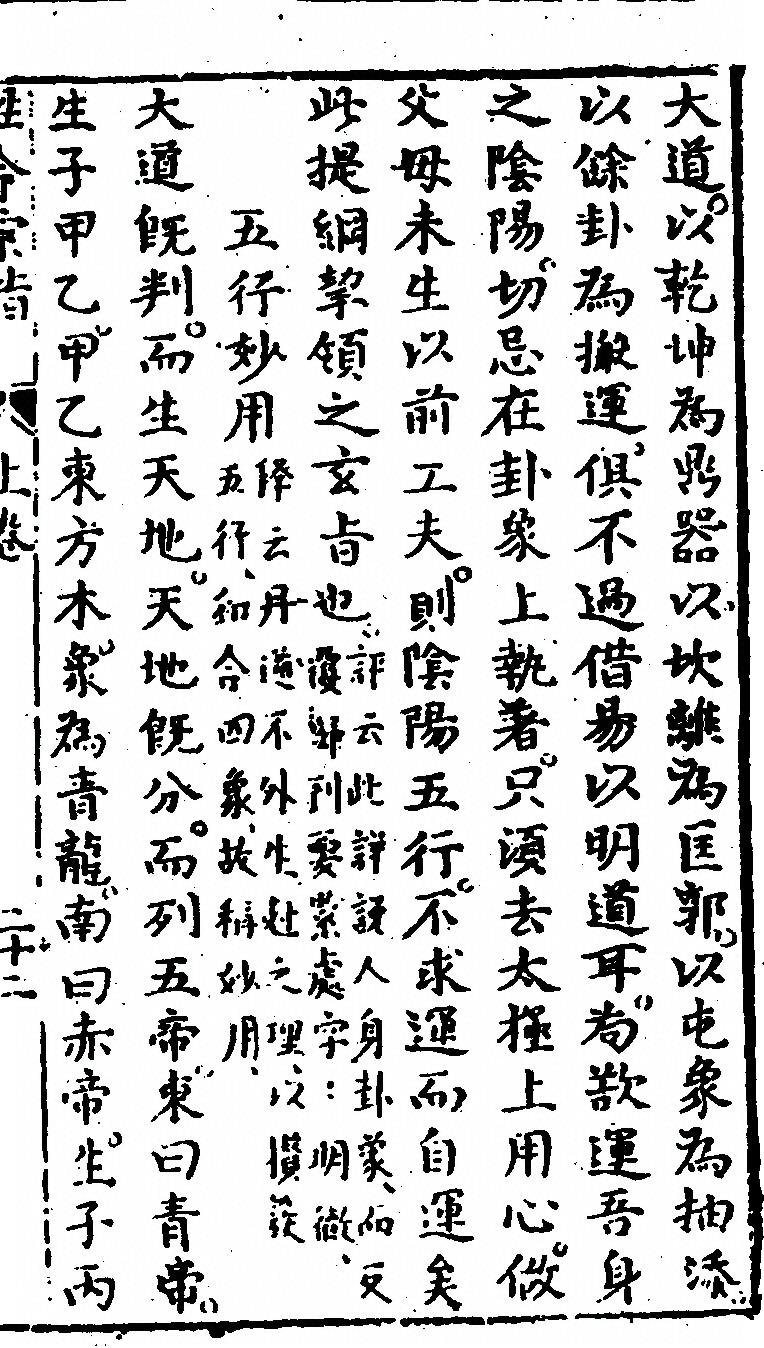 大道以乾坤為鼎器以坎離為匡郭以屯象為抽添
以餘卦為搬運俱不過借易以明道耳尚欲運吾身
之陰陽切忌在卦象上執著只須去太極上用心做
父母未生以前工夫則陰陽五行不求運而自運矣
此提綱挈領之玄旨也評云此詳說人身卦象而又
復歸到要緊處字:明徹
五行妙用
云丹道不外生尅之理以攢簇
五行和合四象故稱妙用
大道既判而生天地天地既分而列五帝東曰青帝
生子甲乙甲乙東方木象為青龍南曰赤帝生子丙
上卷
二十二